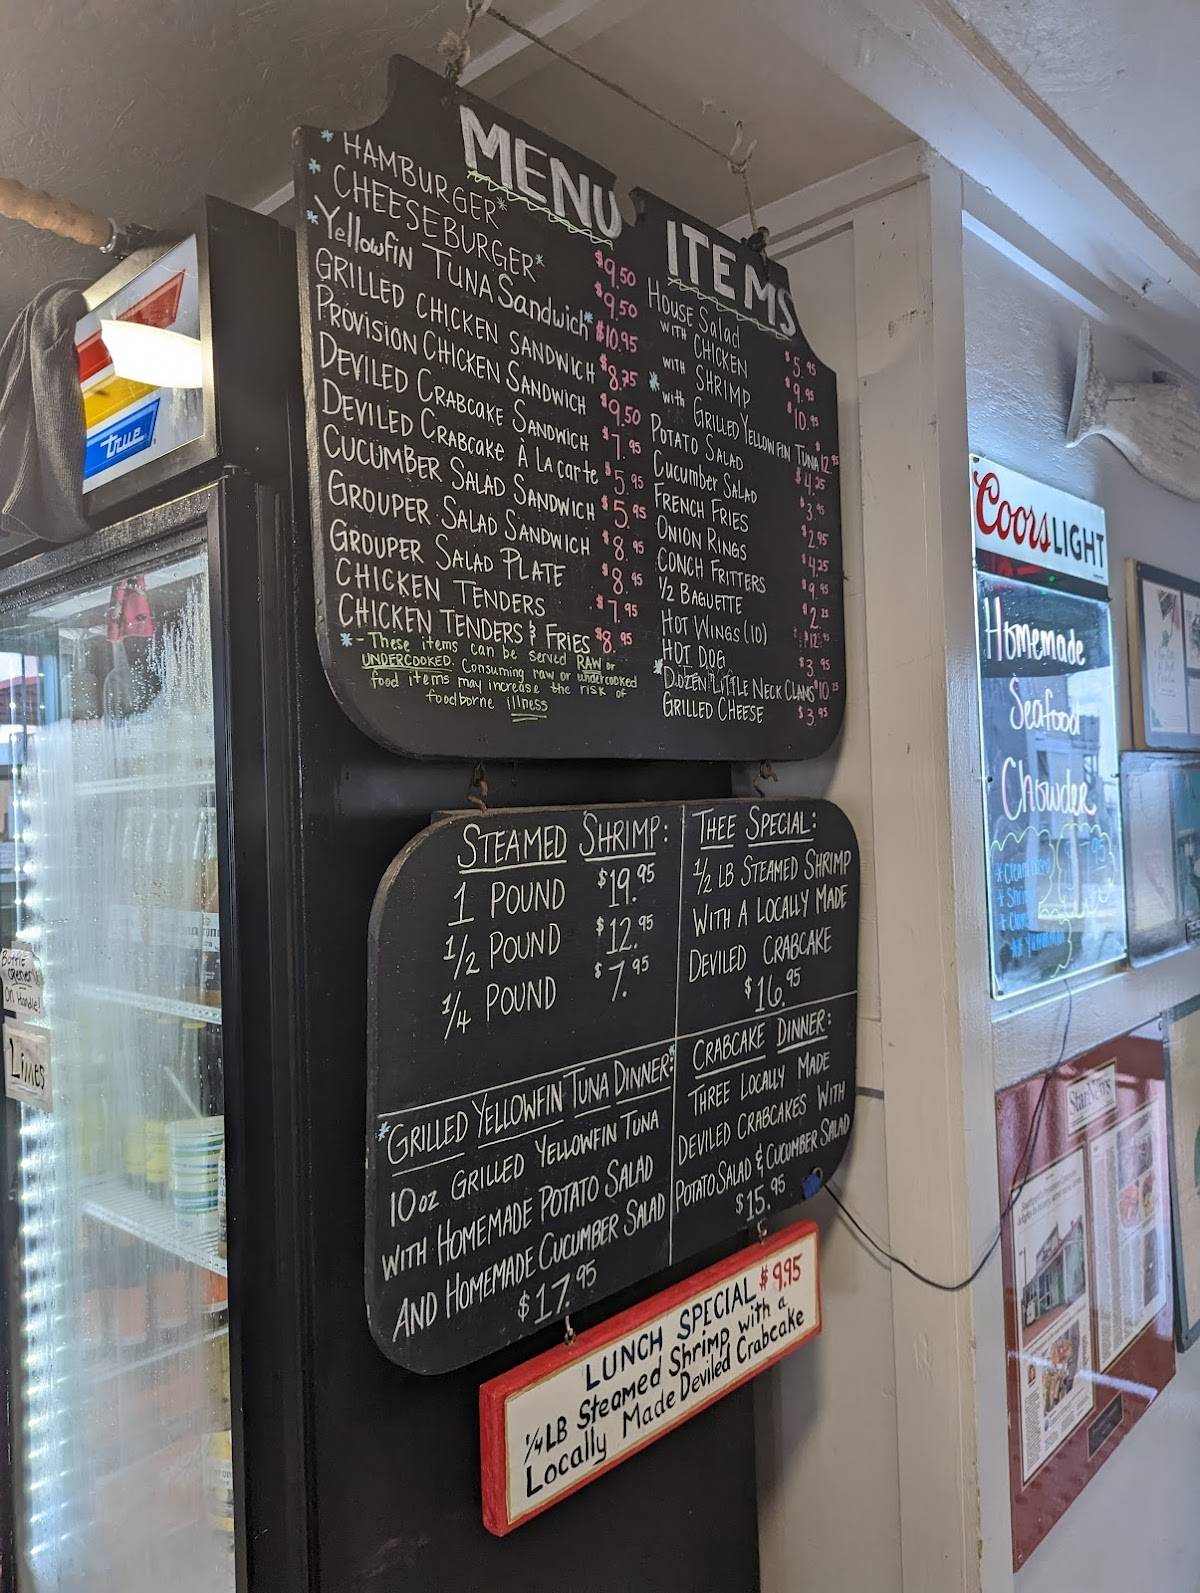 MENU ITEMS
* HAMBURGER* $9.50
* CHEESEBURGER* $9.50
* Yellowfin TUNA Sandwich* $10.95
GRILLED CHICKEN SANDWICH $8.75
PROVISION CHICKEN SANDWICH $9.50
DEVILED CRABCAKE SANDWICH $7.95
DEVILED CRABCAKE À La carte $5.95
CUCUMBER SALAD SANDWICH $5.95
GROUPER SALAD SANDWICH $8.95
GROUPER SALAD PLATE $8.95
CHICKEN TENDERS $7.95
CHICKEN TENDERS & FRIES $8.95
* - These items can be served RAW or
UNDERCOOKED. Consuming raw or undercooked
food items may increase the risk of
foodborne illness
HOUSE Salad $5.95
WITH CHICKEN $9.95
WITH SHRIMP $10.95
* with GRILLED YELLOWFIN TUNA $12.95
POTATO SALAD $4.25
Cucumber SALAD $3.95
FRENCH FRIES $2.95
ONION RINGS $4.25
CONCH FRITTERS $9.95
1/2 BAGUETTE $2.25
HOT WINGS (10)
HOT DOG $3.95
* DOZEN LITTLE NECK CLAMS
GRILLED CHEESE $3.95
STEAMED SHRIMP:
1 POUND $19.95
1/2 POUND $12.95
1/4 POUND $7.95
THEE SPECIAL:
1/2 LB STEAMED SHRIMP
WITH A LOCALLY MADE
DEVILED CRABCAKE
$16.95
*GRILLED YELLOWFIN TUNA DINNER:*
10 oz GRILLED YELLOWFIN TUNA
WITH HOMEMADE POTATO SALAD
AND HOMEMADE CUCUMBER SALAD
$17.95
CRABCAKE DINNER:
THREE LOCALLY MADE
DEVILED CRABCAKES WITH
POTATO SALAD & CUCUMBER SALAD
$15.95
LUNCH SPECIAL $9.95
1/4 LB Steamed Shrimp with a
Locally Made Deviled Crabcake
Coors LIGHT
Homemade
Seafood
Chowder
true
BOTTLE
opener
On Handle!
Limes
StarNews